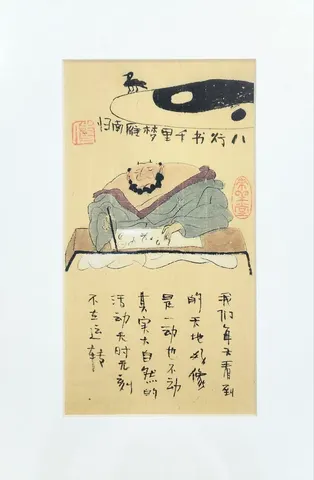 八行书千里梦雁南归
我们每天看到
的天地好像
是一动也不动
其实大自然的
活动无时无刻
不在运转